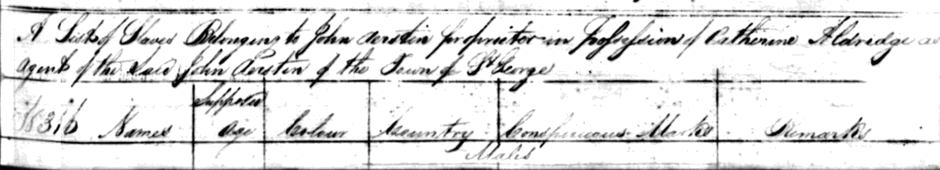 A List of Slaves Belonging to John Aerstin proprietor in Possession of Catherine Aldridge as
Agent of the said John Aerstin of the Town of St George
Supposed
Names Age Colour Country Conspicuous Marks Remarks
Males